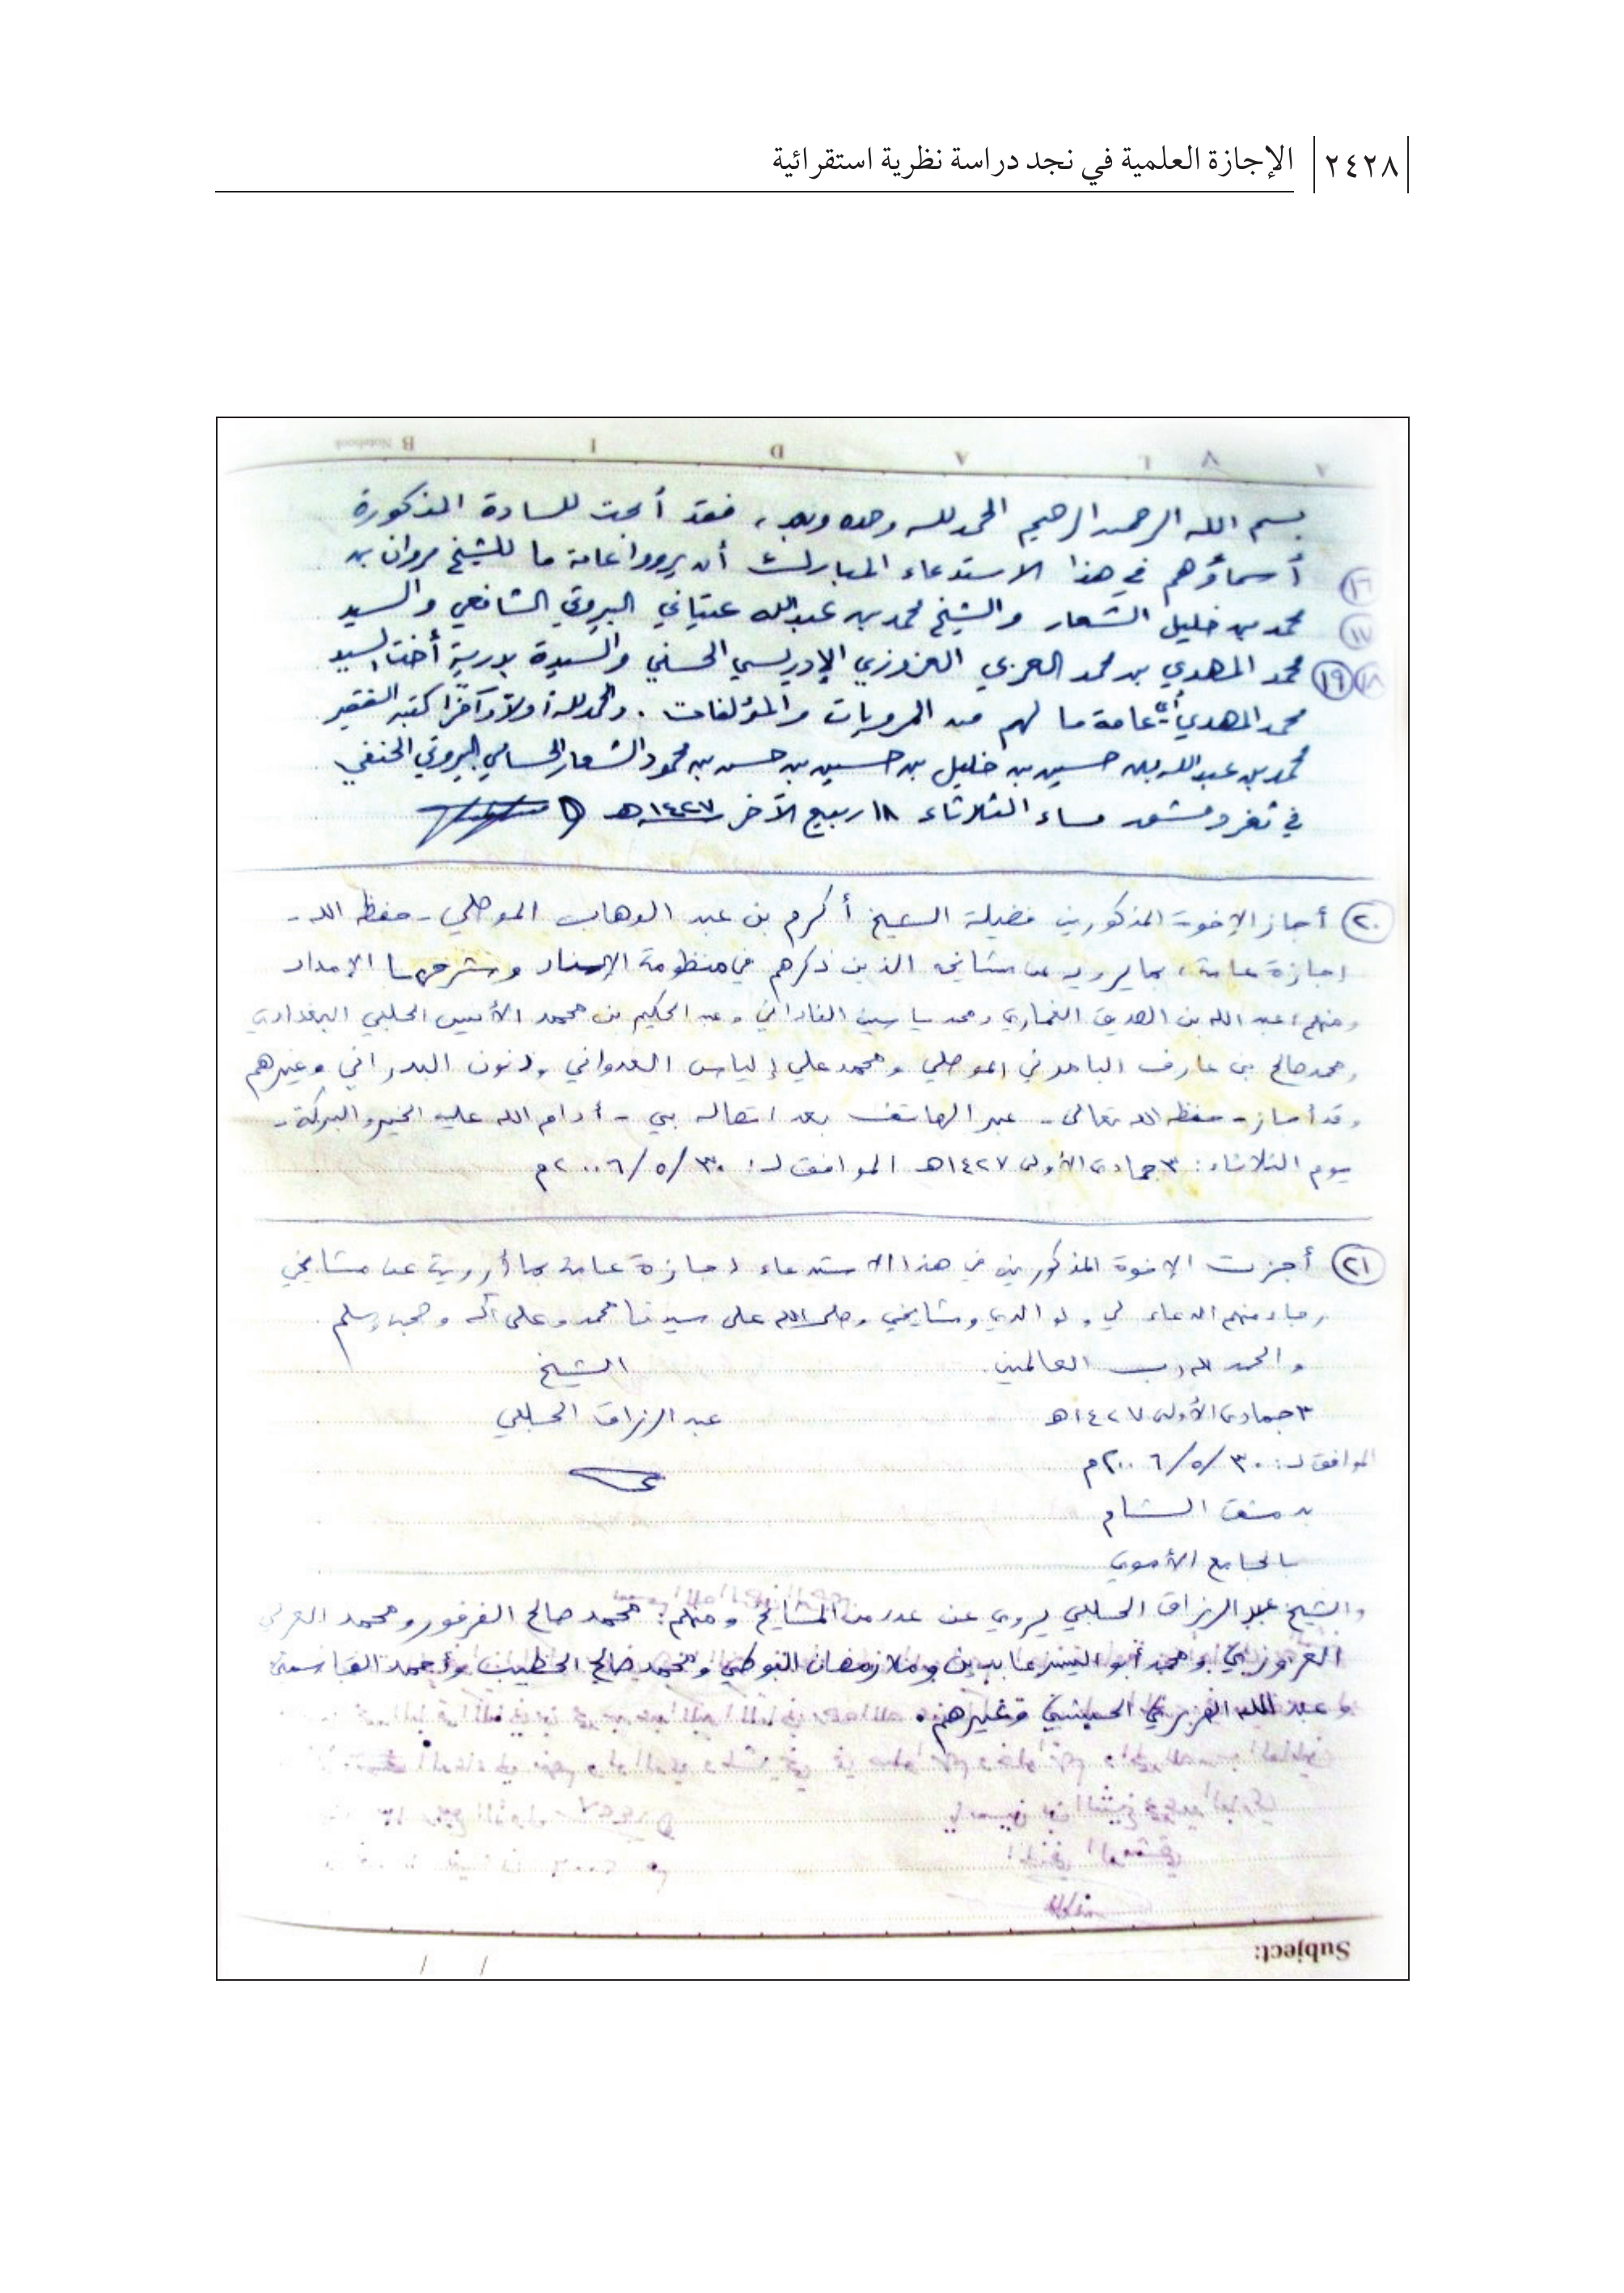 ٢٤٢٨ الإجازة العلمية في نجد دراسة نظرية استقرائية
بسم الله الرحمن الرحيم الحمد لله وحده وبعد، فقد أبحت للسادة المذكورة
١٦ أسماؤهم في هذا الاستدعاء المبارك أن يرووا عامة ما للشيخ مروان بن
١٧ محمد بن خليل الشعار والشيخ محمد بن عبدالله عيتاني البيروتي الشافعي والسيد
١٨ ١٩ محمد المهدي بن محمد العربي العزوزي الإدريسي الحسني والسيدة بدرية أخت السيد
محمد المهدي عامة ما لهم من المرويات والمؤلفات. والحمد لله أولا وآخرا كتبه الفقير
محمد بن عبدالله بن حسين بن خليل بن حسين بن حسن بن محمود الشعار الحسامي البيروتي الحنفي
في ثغر دمشق مساء الثلاثاء ١٨ ربيع الآخر ١٤٢٧هـ
٢٠ أجاز الإخوة المذكورين فضيلة الشيخ أكرم بن عبد الوهاب الموصلي - حفظه الله -
إجازة عامة، بما يرويه عن مشايخه الذين ذكرهم في منظومة الإسناد وشرحها الإمداد
ومنهم: عبد الله بن الصديق الغماري ومحمد ياسين الفاداني وعبد الحكيم بن محمد الأنيس الحلبي البغدادي
ومحمد صالح بن عارف الموصلي ومحمد علي إلياس العدواني وذنون البدراني وغيرهم
وقد أجاز - حفظه الله تعالى - عبر الهاتف بعد اتصاله بي - أدام الله عليه الخير والبركة -
يوم الثلاثاء: ٣ جمادى الأولى ١٤٢٧هـ الموافق لـ: ٣٠/٥/٢٠٠٦م
٢١ أجزت الإخوة المذكورين في هذا الاستدعاء إجازة عامة بما أرويه عن مشايخي
رجاء منهم الدعاء لي ولوالدي ومشايخي وصلى الله على سيدنا محمد وعلى آله وصحبه وسلم
والحمد لله رب العالمين. الشيخ
٣ جمادى الأولى ١٤٢٧هـ عبد الرزاق الحلبي
الموافق لـ: ٣٠/٥/٢٠٠٦م
بدمشق الشام
بالجامع الأموي
والشيخ عبد الرزاق الحلبي يروي عن عدد من المشايخ ومنهم: محمد صالح الفرفور ومحمد العربي
العزوزي ومحمد أبو اليسر عابدين وملا رمضان البوطي ومحمد صالح الخطيب وأحمد القاسمي
و عبد الله الهرري الحبشي وغيرهم.
Subject: